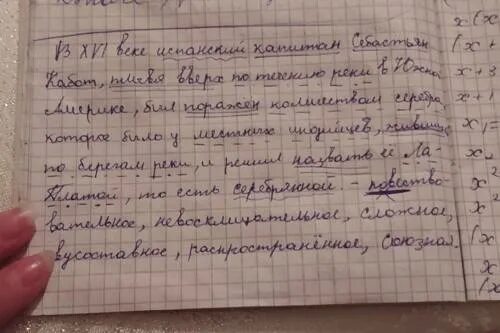 В XVI веке испанский капитан Себастьян
Кабот, плывя вверх по течению реки в Южна
Америке, был поражён количеством серебра,
которое было у местных индейцев, живших
по берегам реки, и решил назвать её Ла-
Платой, то есть серебрянной. - повество-
вательное, невосклицательное, сложное,
вусоставное, распространённое, союзная.
x (x
(x +
x + 3
x + 1
x₁ =
x₂
x²
x²
(x
x
(x